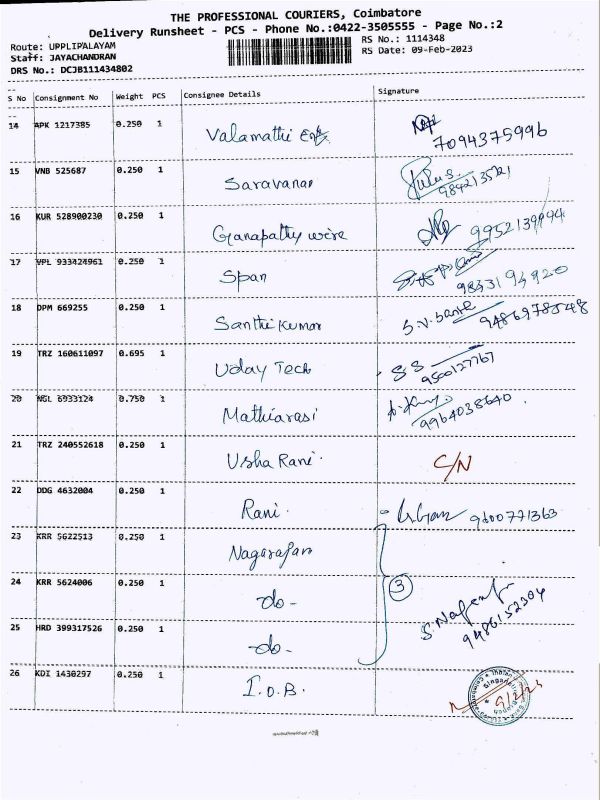 THE PROFESSIONAL COURIERS, Coimbatore
Delivery Runsheet - PCS - Phone No.:0422-3505555 - Page No.:2
Route: UPPLIPALAYAM
RS No.: 1114348
Staff: JAYACHANDRAN
RS Date: 09-Feb-2023
DRS No.: DCJB111434802
S No Consignment No Weight PCS Consignee Details Signature
14 APK 1217385 0.250 1 Valamathi 7094375996
15 VNB 525687 0.250 1 Saravanan
16 KUR 528900230 0.250 1 Ganapathy wire
17 VPL 933424961 0.250 1 Span
18 DPM 669255 0.250 1 Santhi Kumar
19 TRZ 160611097 0.695 1 Uday Tech SS 9500127767
20 NGL 6933124 0.750 1 Mathiarasi 9964038640
21 TRZ 240552618 0.250 1 Usha Rani. C/N
22 DDG 4632004 0.250 1 Rani. 9600771363
23 KRR 5622513 0.250 1 Nagarajan
24 KRR 5624006 0.250 1 -do- 3 9486152304
25 HRD 399317526 0.250 1 -do-
26 KDI 1430297 0.250 1 I.O.B. 9/2/23